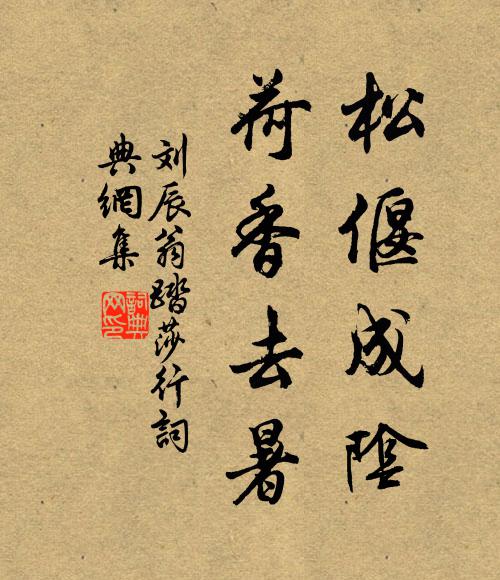 松偃成陰
荷香去暑
刘辰翁踏莎行詞
典網集
詞典
网印